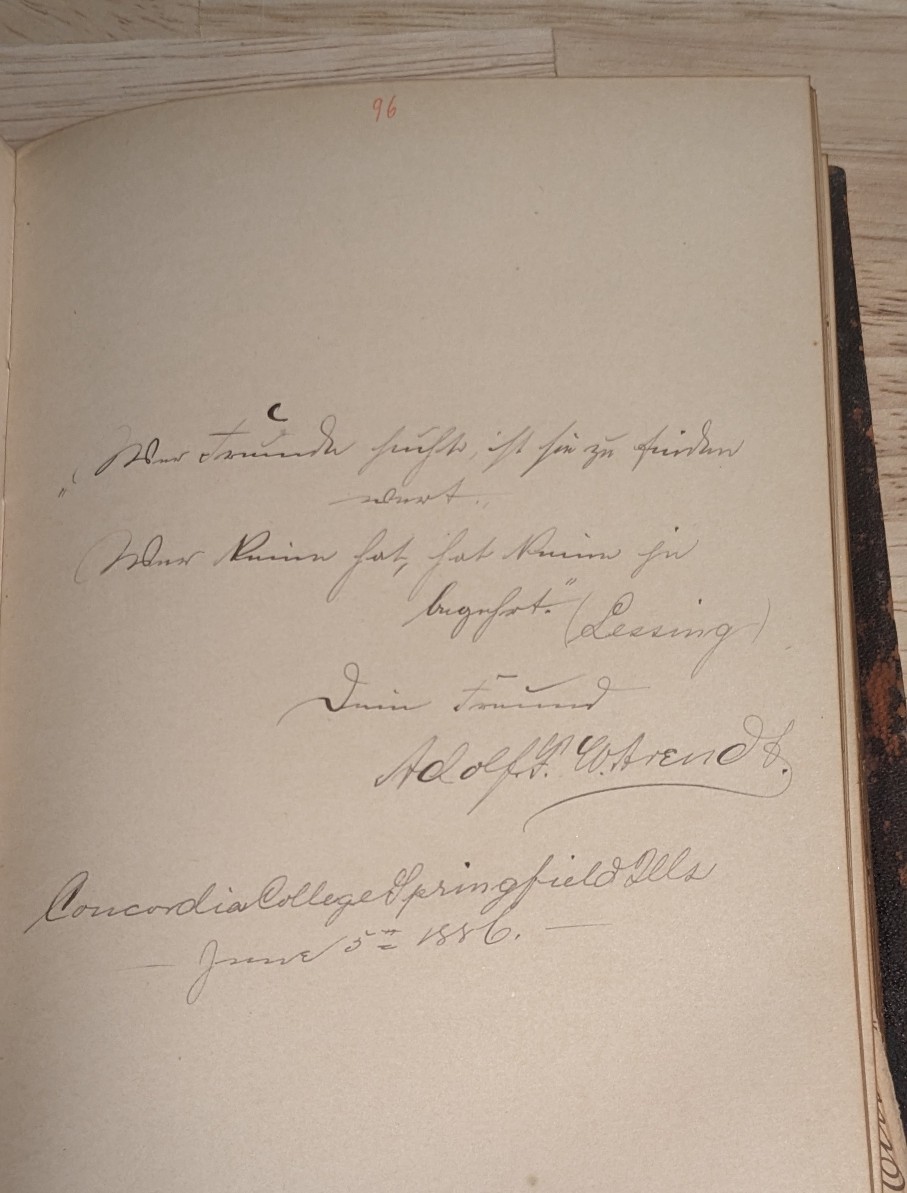 96
„Wer Freunde sucht, ist sie zu finden
wert.
Wer keine hat, hat keine je
begehrt.“ (Lessing)
Dein Freund
Adolf F. W. Arendt.
Concordia College Springfield Ills
— June 5th 1886. —